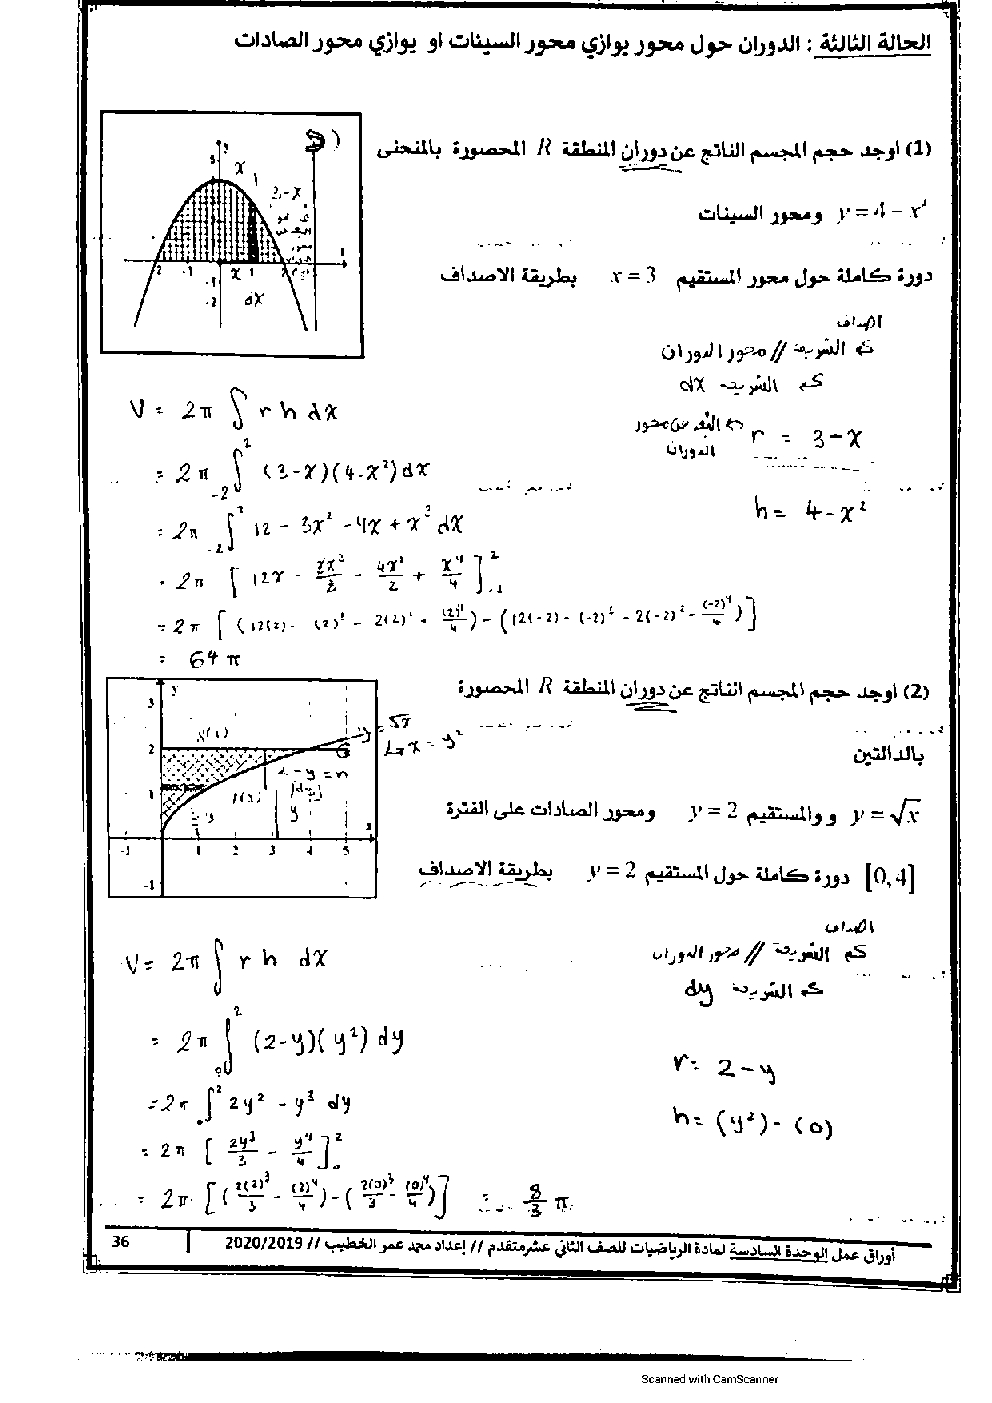 الحالة الثالثة : الدوران حول محور يوازي محور السينات او يوازي محور الصادات
(1) اوجد حجم المجسم الناتج عن دوران المنطقة R المحصورة بالمنحنى
y = 4 - x² ومحور السينات
دورة كاملة حول محور المستقيم x = 3 بطريقة الاصداف
اصداف
كم الشريحة // محور الدوران
كم الشريحة dx
V = 2π ∫ r h dx
البعد عن محور الدوران r = 3 - x
= 2π ∫₋₂² (3-x)(4-x²) dx
h = 4 - x²
= 2π ∫₋₂² 12 - 3x² - 4x + x³ dx
= 64 π
(2) اوجد حجم المجسم الناتج عن دوران المنطقة R المحصورة
بالدالتين
y = √x و والمستقيم y = 2 ومحور الصادات على الفترة
[0,4] دورة كاملة حول المستقيم y = 2 بطريقة الاصداف
اصداف
كم الشريحة // محور الدوران
كم الشريحة dy
V = 2π ∫ r h dx
= 2π ∫₀² (2-y)(y²) dy
r = 2 - y
= 2π ∫₀² 2y² - y³ dy
h = (y²) - (0)
= 2π [ 2y³/3 - y⁴/4 ]₀²
= 2π [ ( 2(2)³/3 - (2)⁴/4 ) - ( 2(0)³/3 - (0)⁴/4 ) ] = 8/3 π
أوراق عمل الوحدة السادسة لمادة الرياضيات للصف الثاني عشر متقدم // إعداد محمد عمر الخطيب // 2020/2019
36
Scanned with CamScanner